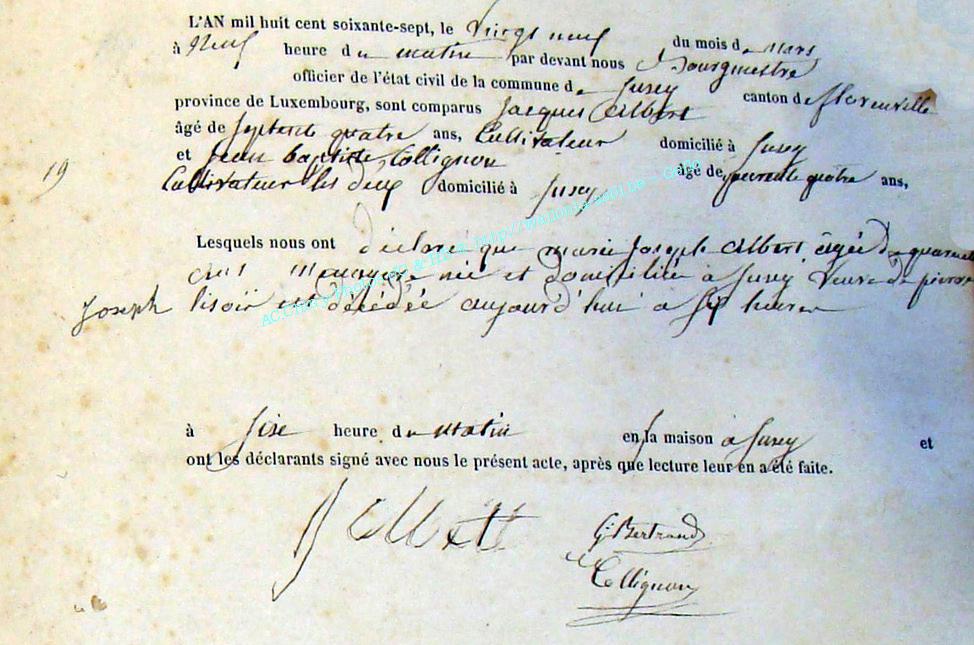 L'AN mil huit cent soixante-sept, le vingt neuf du mois de mars
à neuf heure du matin par devant nous Bourgmestre
officier de l'état civil de la commune de Jusey canton de florenville
province de Luxembourg, sont comparus Jacques Albert
âgé de septente quatre ans, Cultivateur domicilié à Jusey
et Jean baptiste Collignon âgé de quatre ans,
19
Cultivateur les deux domicilié à Jusey
Lesquels nous ont déclaré que marie Joseph Albert, agée de quarante
née et domiciliée à Jusey veuve de pierre
Joseph lisoir est décédée aujourd'hui à six heures
à sixe heure du matin en la maison à Jusey et
ont les déclarants signé avec nous le présent acte, après que lecture leur en a été faite.
J Albert
G. Bertrand
Collignon